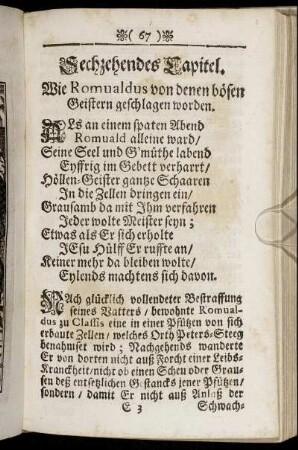 ( 67 )
Sechzehendes Capitel.
Wie Romualdus von denen bösen
Geistern geschlagen worden.
ALs an einem spaten Abend
Romuald alleine ward/
Seine Seel und G'müthe labend
Eyffrig im Gebett verharrt/
Höllen-Geister gantze Schaaren
In die Zellen dringen ein/
Grausamb da mit Ihm verfahren
Jeder wolte Meister seyn;
Etwas als Er sich erholte
JEsu Hülff Er ruffte an/
Keiner mehr da bleiben wolte/
Eylends machtens sich davon.
NAch glücklich vollendeter Bestraffung
seines Vatters / bewohnte Romual-
dus zu Classis eine in einer Pfützen von sich
erbaute Zellen/ welches Orth Peters-Steeg
benahmset wird; Nachgehends wanderte
Er von dorten nicht auß Forcht einer Leibs-
Kranckheit/nicht ob einen Scheu oder Grau-
sen deß entsetzlichen Gestancks jener Pfützen/
sondern / damit Er nicht auß Anlaß der
E 3 Schwach-